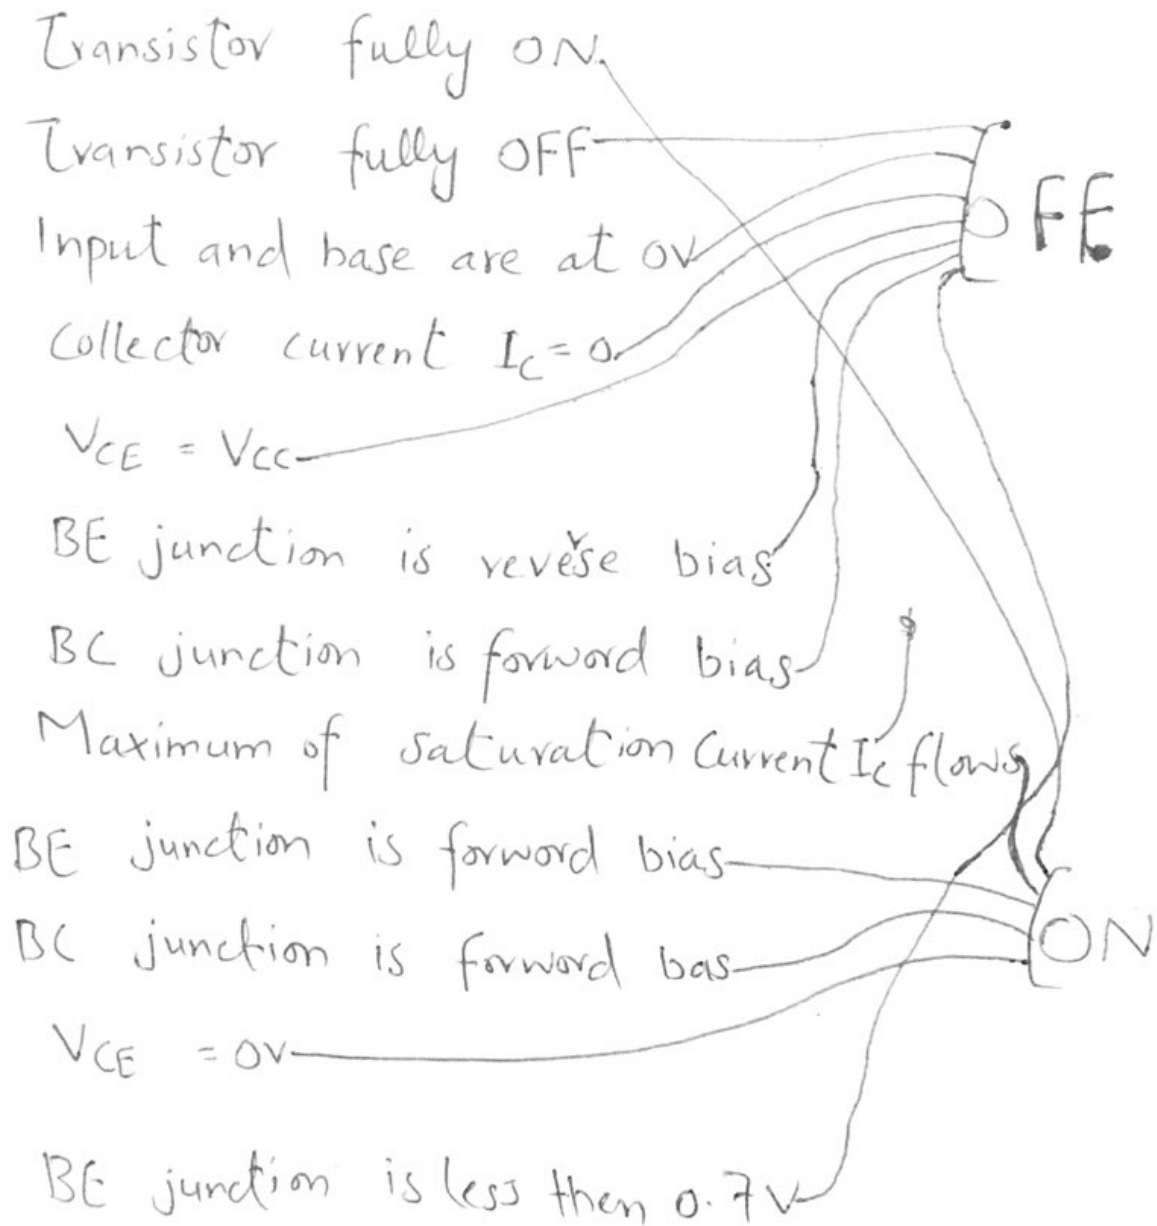 Transistor fully ON.
Transistor fully OFF
OFF
Input and base are at 0V
Collector current Ic = 0
VCE = VCC
BE junction is revese bias
BC junction is forword bias
Maximum of saturation current Ic flows
BE junction is forword bias
BC junction is forword bas
ON
VCE = 0V
BE junction is less then 0.7V